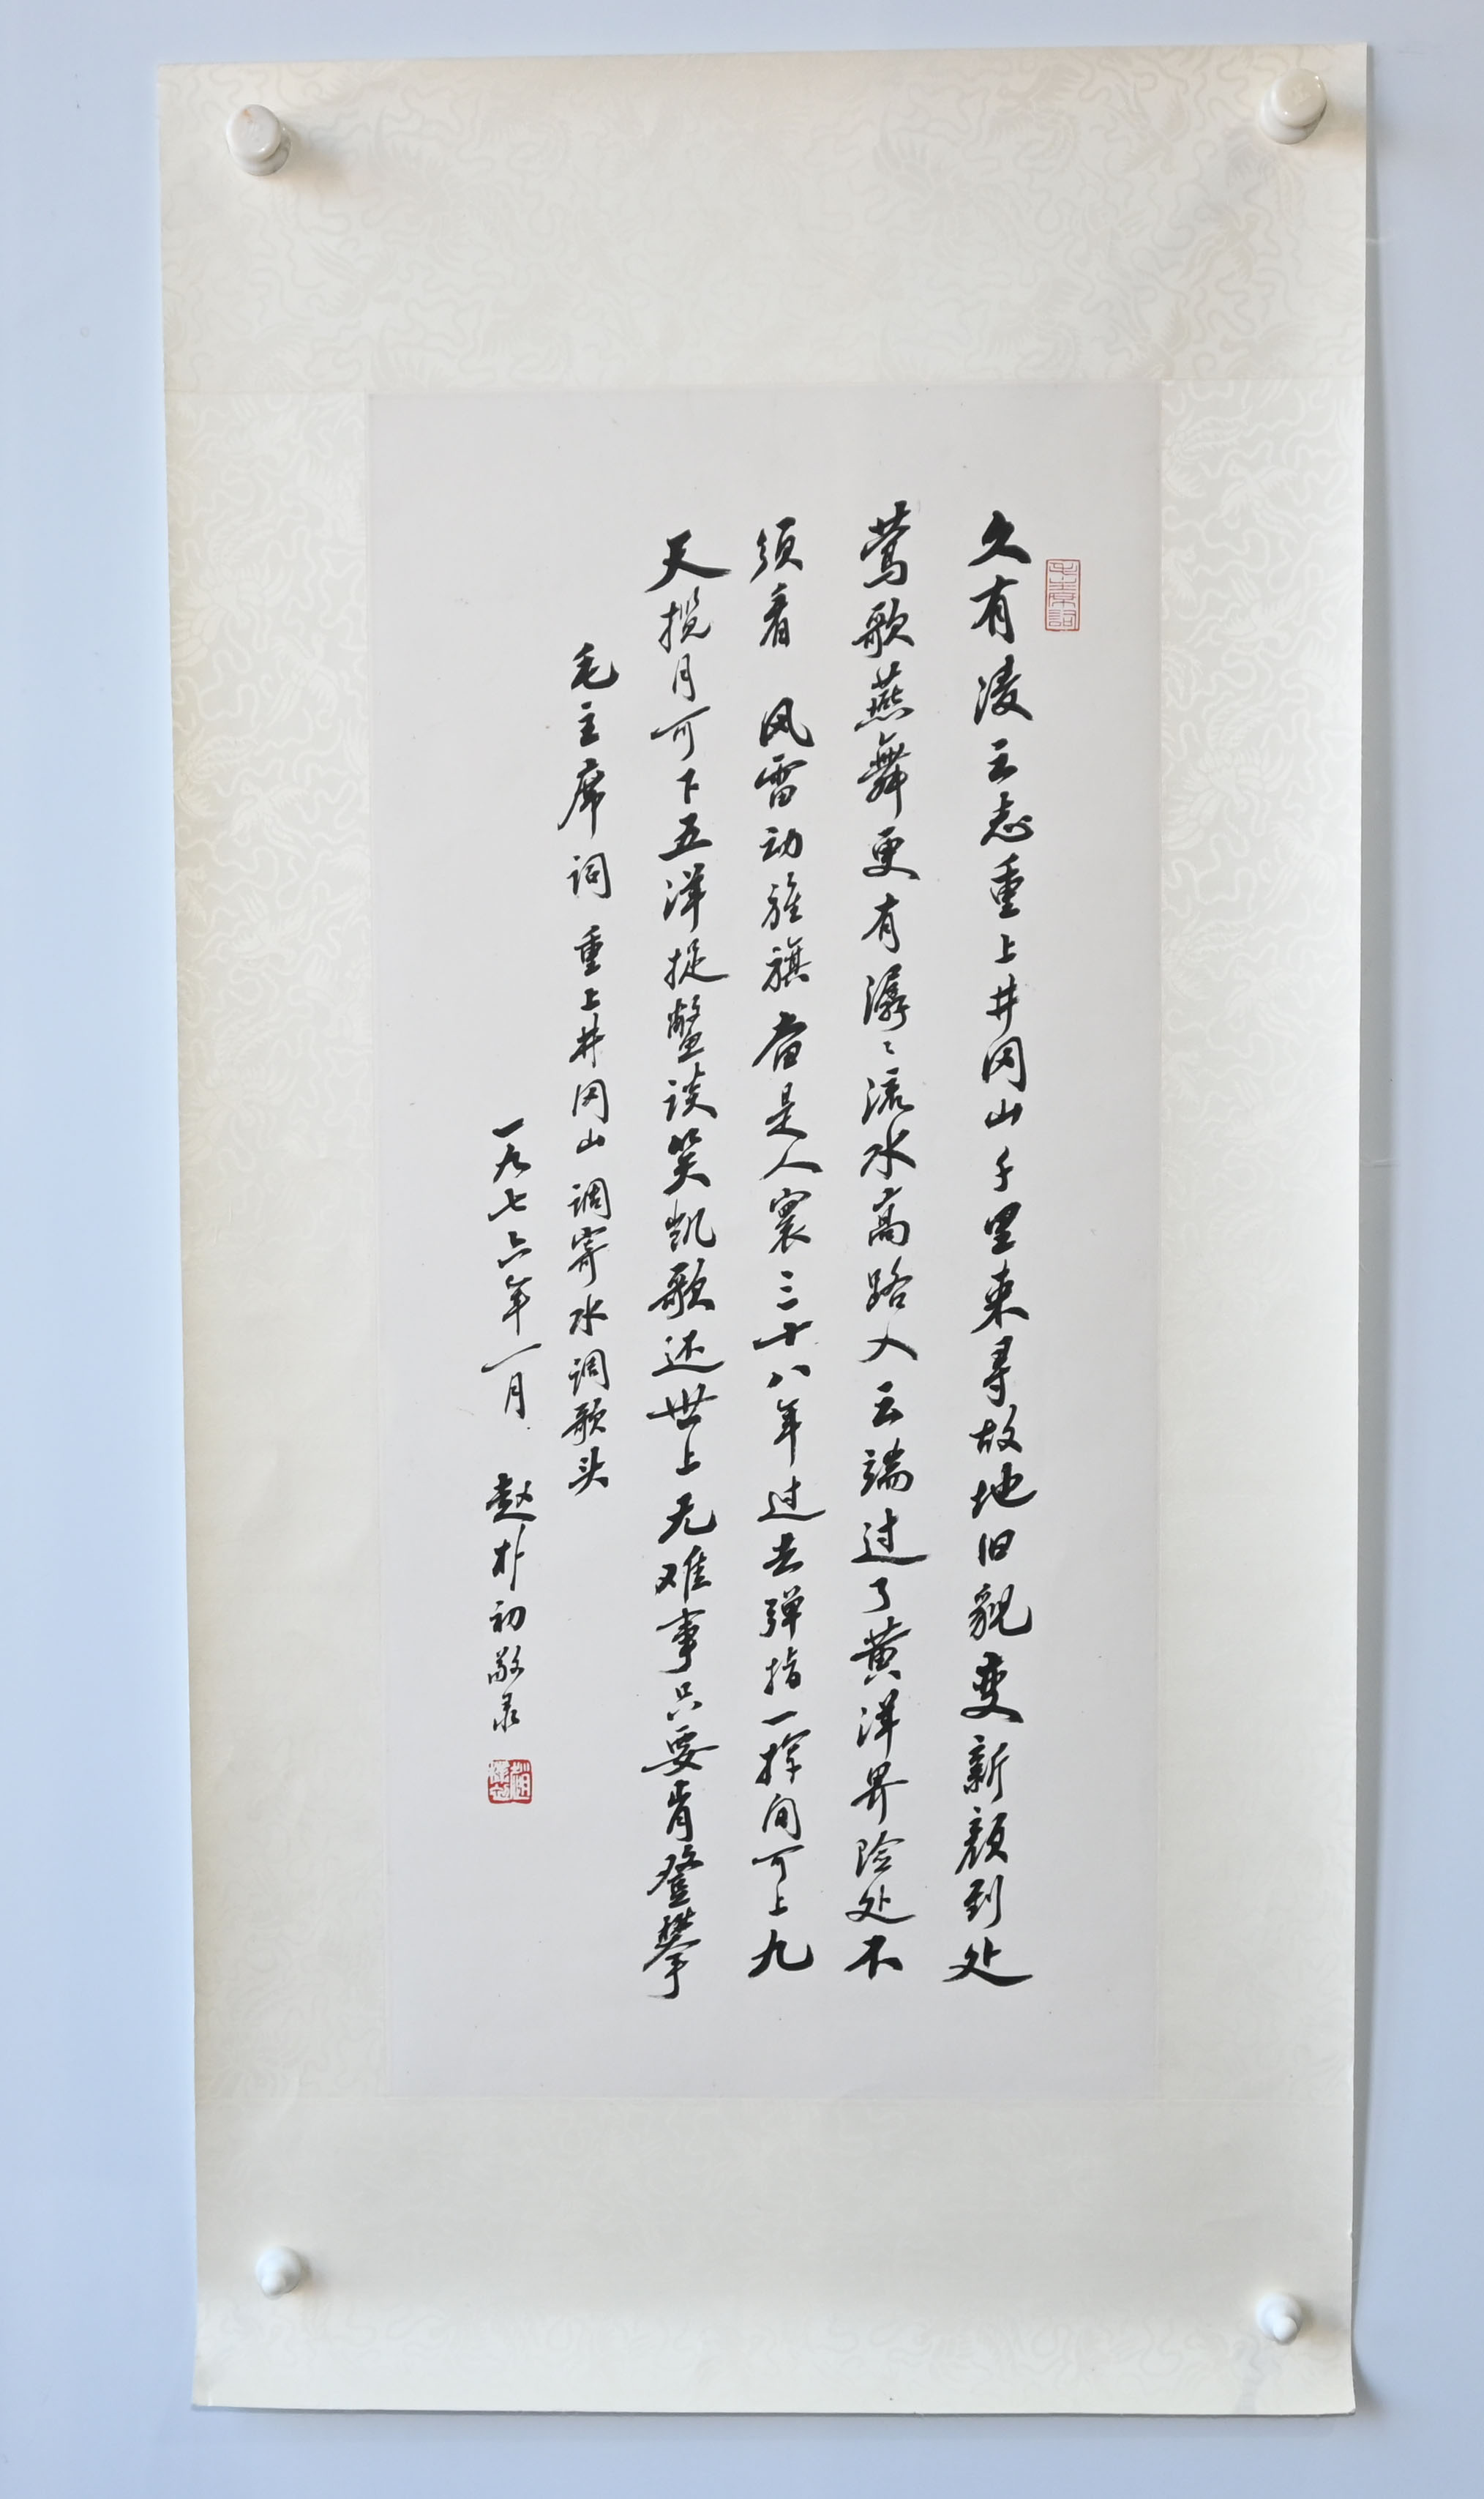 久有凌云志重上井冈山千里来寻故地旧貌变新颜到处
莺歌燕舞更有潺々流水高路入云端过了黄洋界险处不
须看 风雷动旌旗奋是人寰三十八年过去弹指一挥间可上九
天揽月可下五洋捉鳖谈笑凯歌还世上无难事只要肯登攀
毛主席词 重上井冈山 调寄水调歌头
一九七六年一月 赵朴初敬录